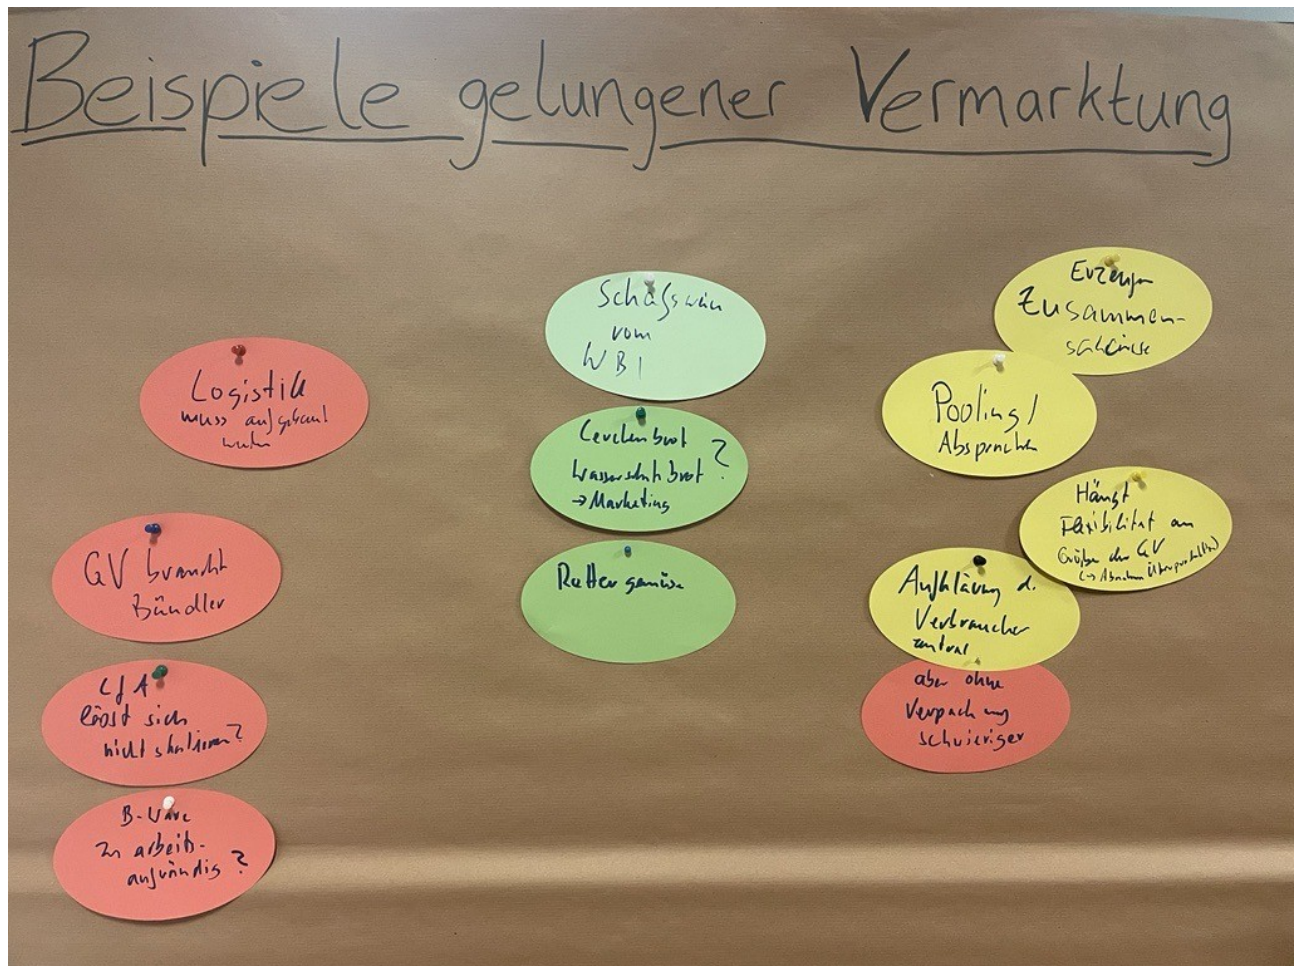 Beispiele gelungener Vermarktung
Logistik
muss aufgebaut
werden
GV braucht
Bündler
lässt sich
nicht skalieren?
B-Ware
zu arbeits-
aufwändig?
Schafswein
vom
WBI
Lerchenbrot
Wasserschutzbrot?
→ Marketing
Rettergemüse
Erzeuger
Zusammen-
schlüsse
Pooling/
Absprachen
Hängt
Flexibilität an
Größe der GV
Aufklärung d.
Verbraucher
zentral
aber ohne
Verpackung
schwieriger